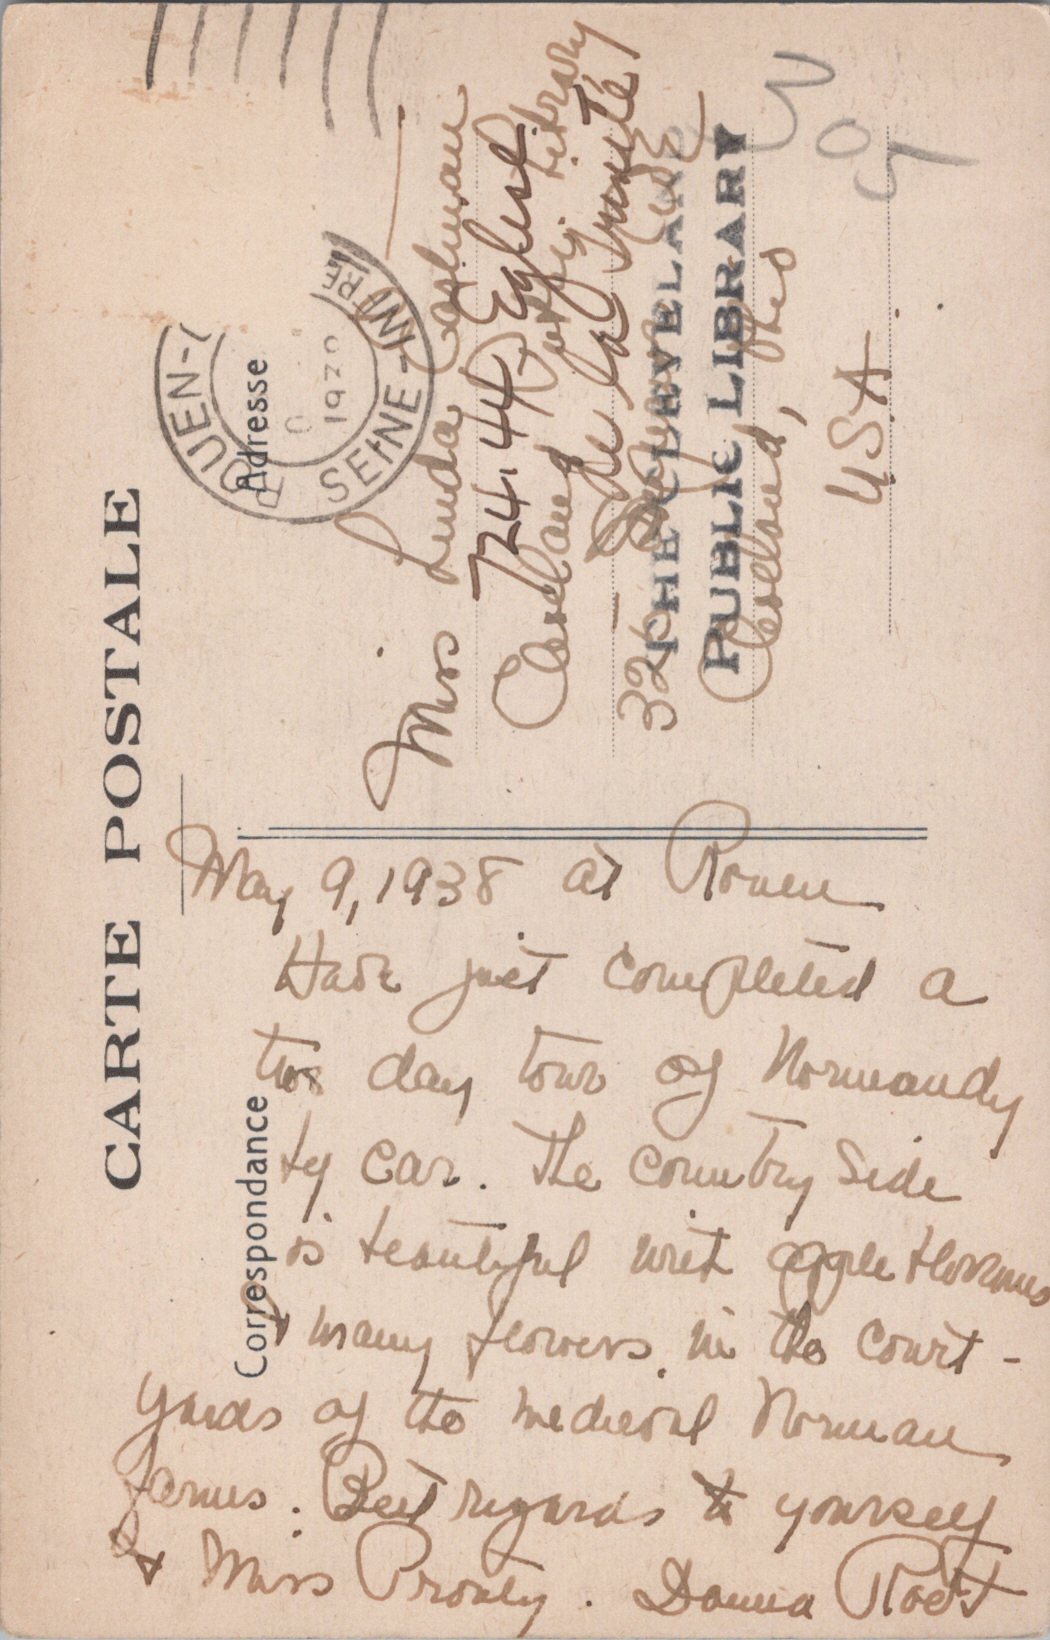 CARTE POSTALE
Correspondance
Adresse
ROUEN-
SEINE-INFRE
1938
May 9, 1938 at Rouen
Have just completed a
two day tour of Normandy
by car. The country side
is beautiful with apple blossoms
+ many flowers in the court-
yards of the medieval Norman
farms. Best regards to yourself
+ Miss Prouty. Donna Root
Miss Linda Eastman
724.44 Eglise
Cleveland Public Library
de la Trinité
325 Superior Ave
THE CLEVELAND
PUBLIC LIBRARY
Cleveland, Ohio
USA